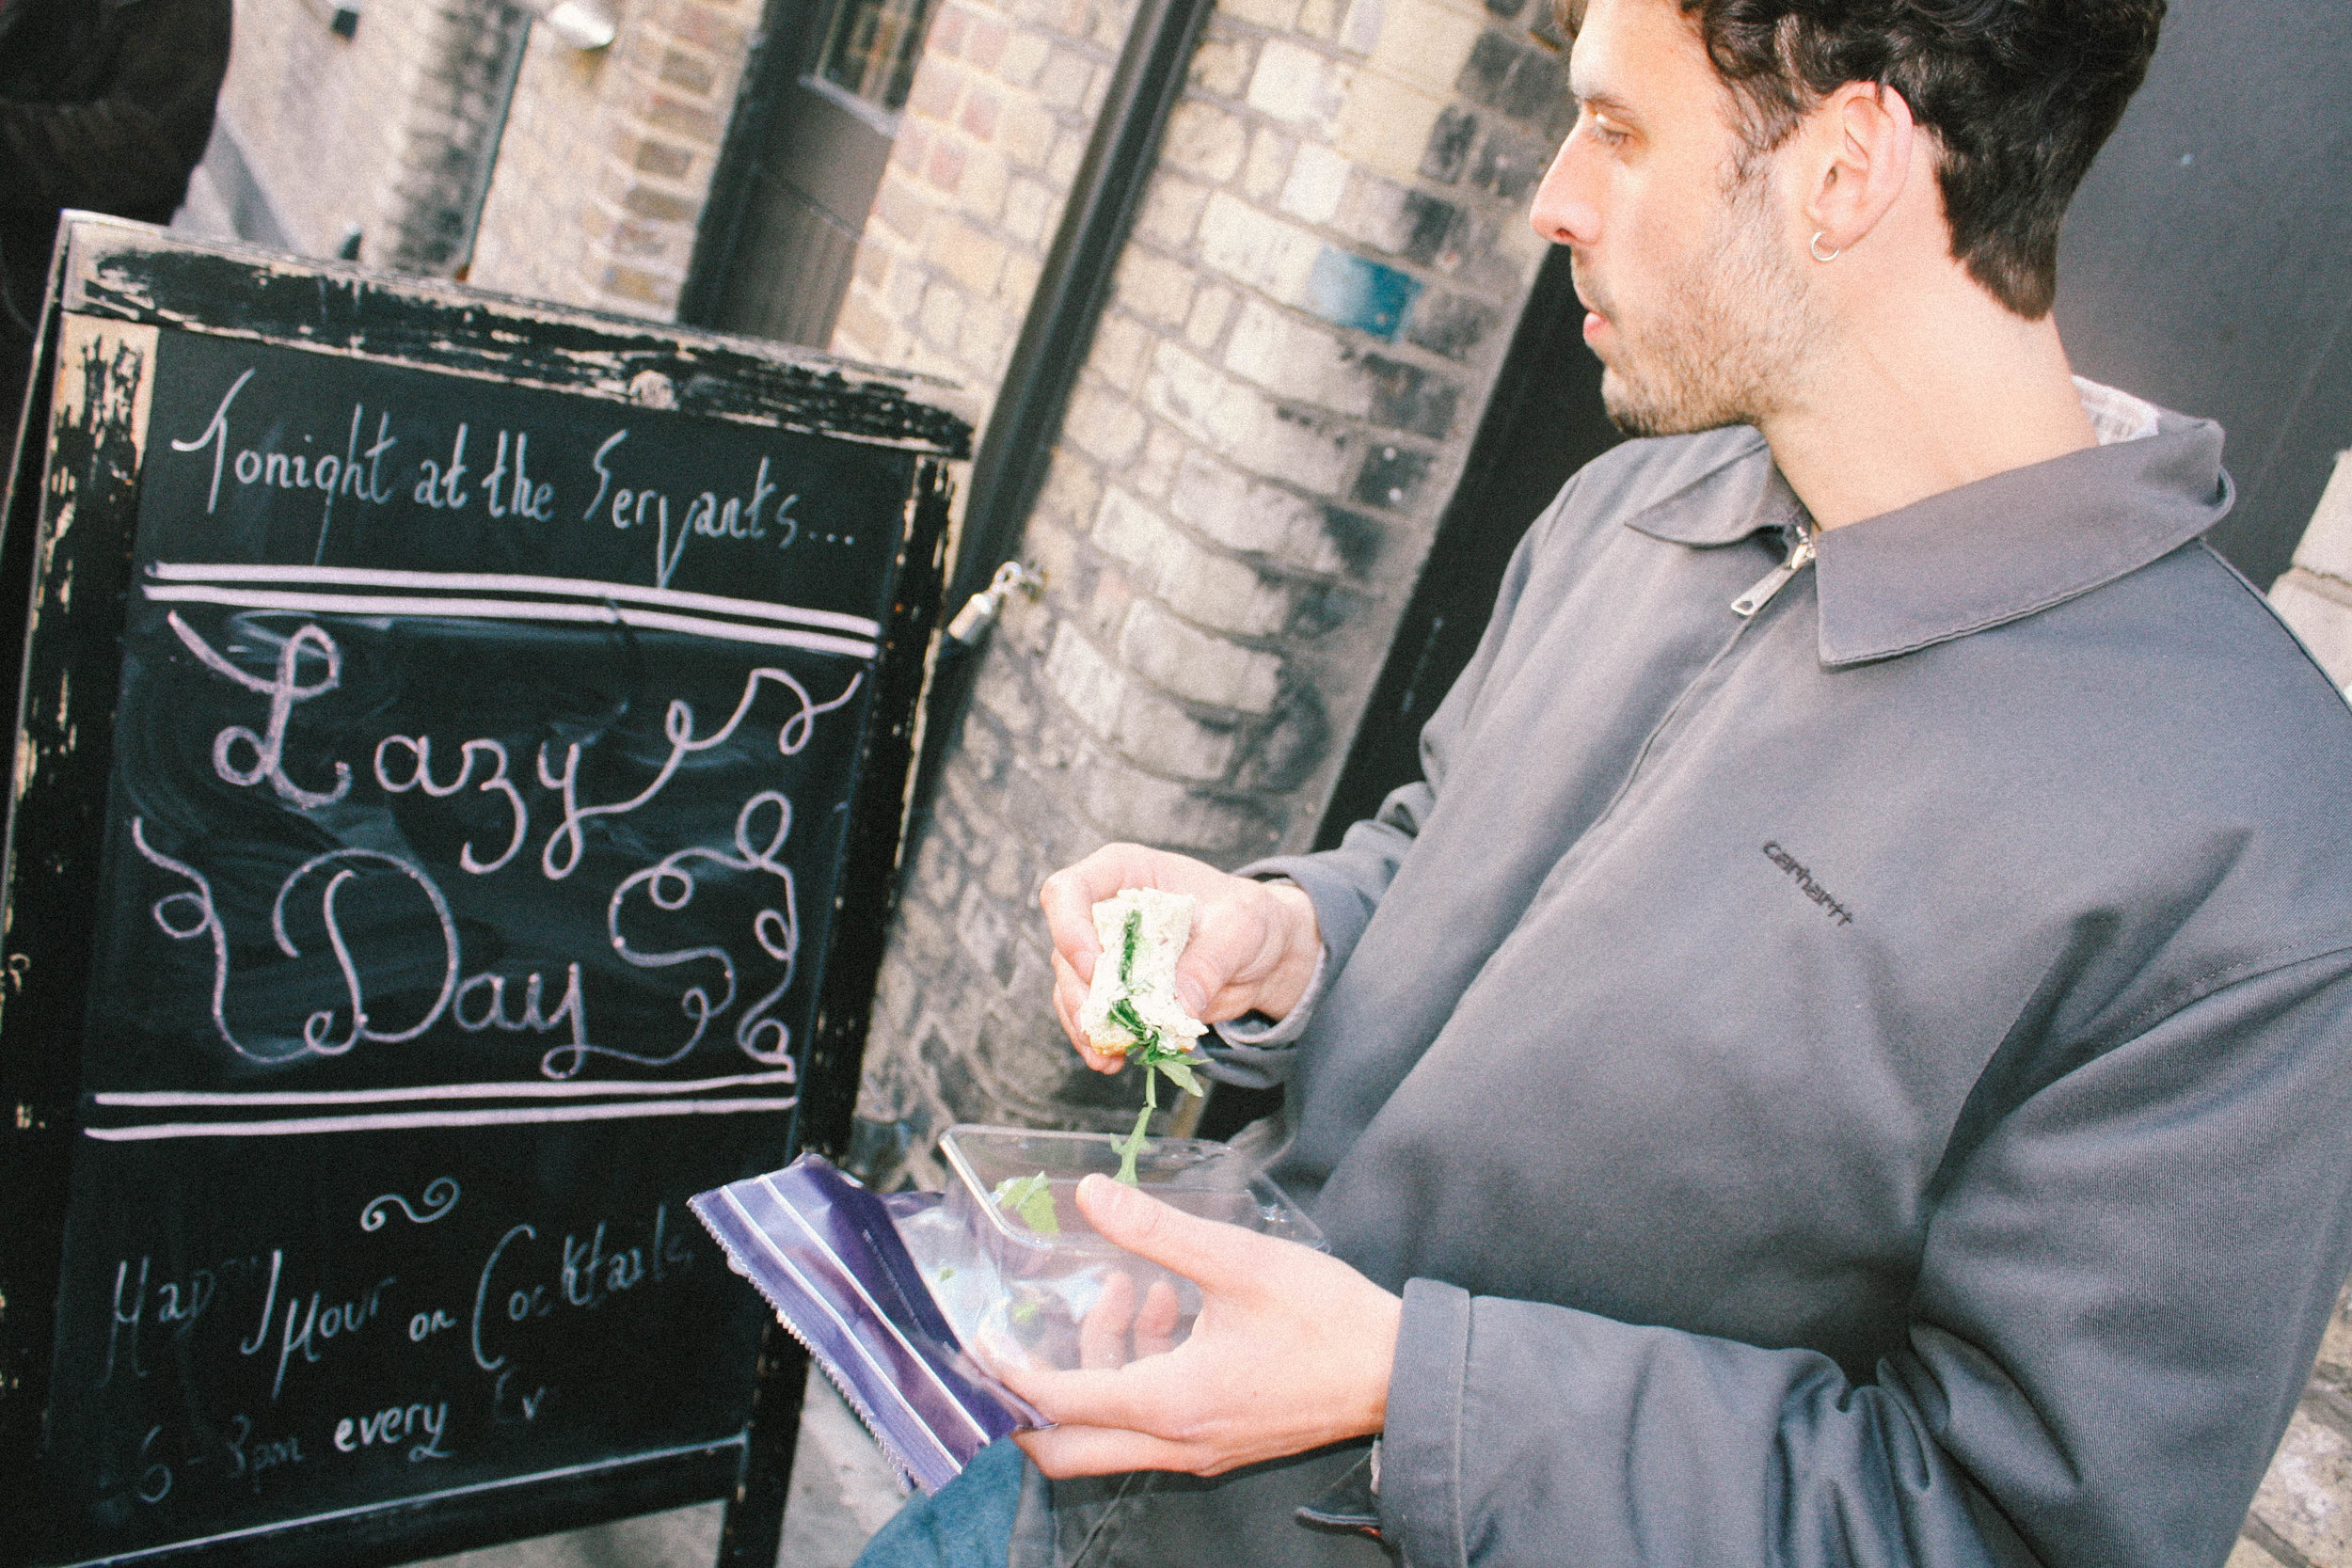 Tonight at the Servants...
Lazy
Day
Happy Hour on Cocktails
6-8pm every
carhartt